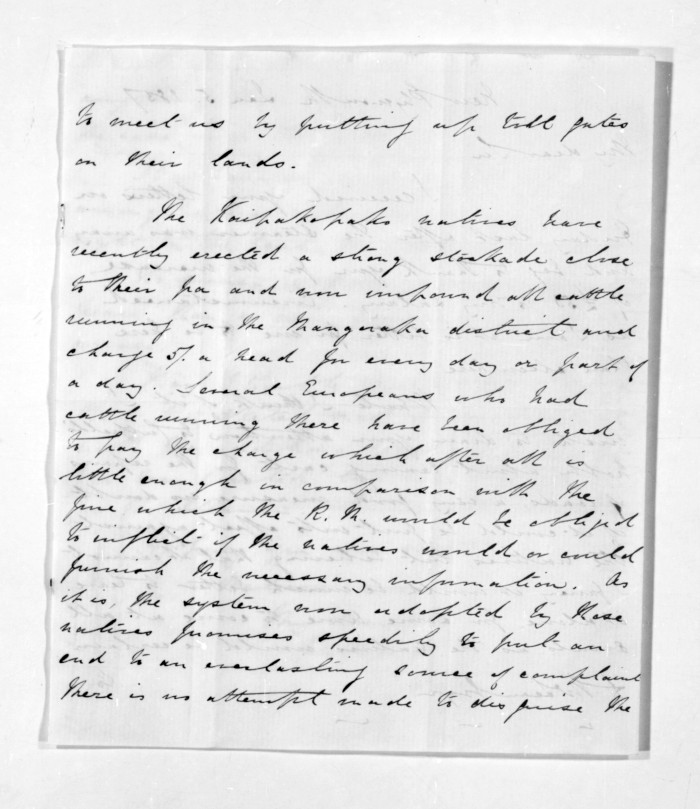 to meet us by putting up toll gates
on their lands.
The Kaipakopako natives have
recently erected a strong stockade close
to their pa and now impound all cattle
running in the Mangoraka district and
charge 5/. a head for every day or part of
a day. Several Europeans who had
cattle running there have been obliged
to pay the charge which after all is
little enough in comparison with the
fine which the R.M. would be obliged
to inflict if the natives would or could
furnish the necessary information. As
it is, the system now adopted by these
natives promises speedily to put an
end to an everlasting source of complaint
There is no attempt made to disguise the